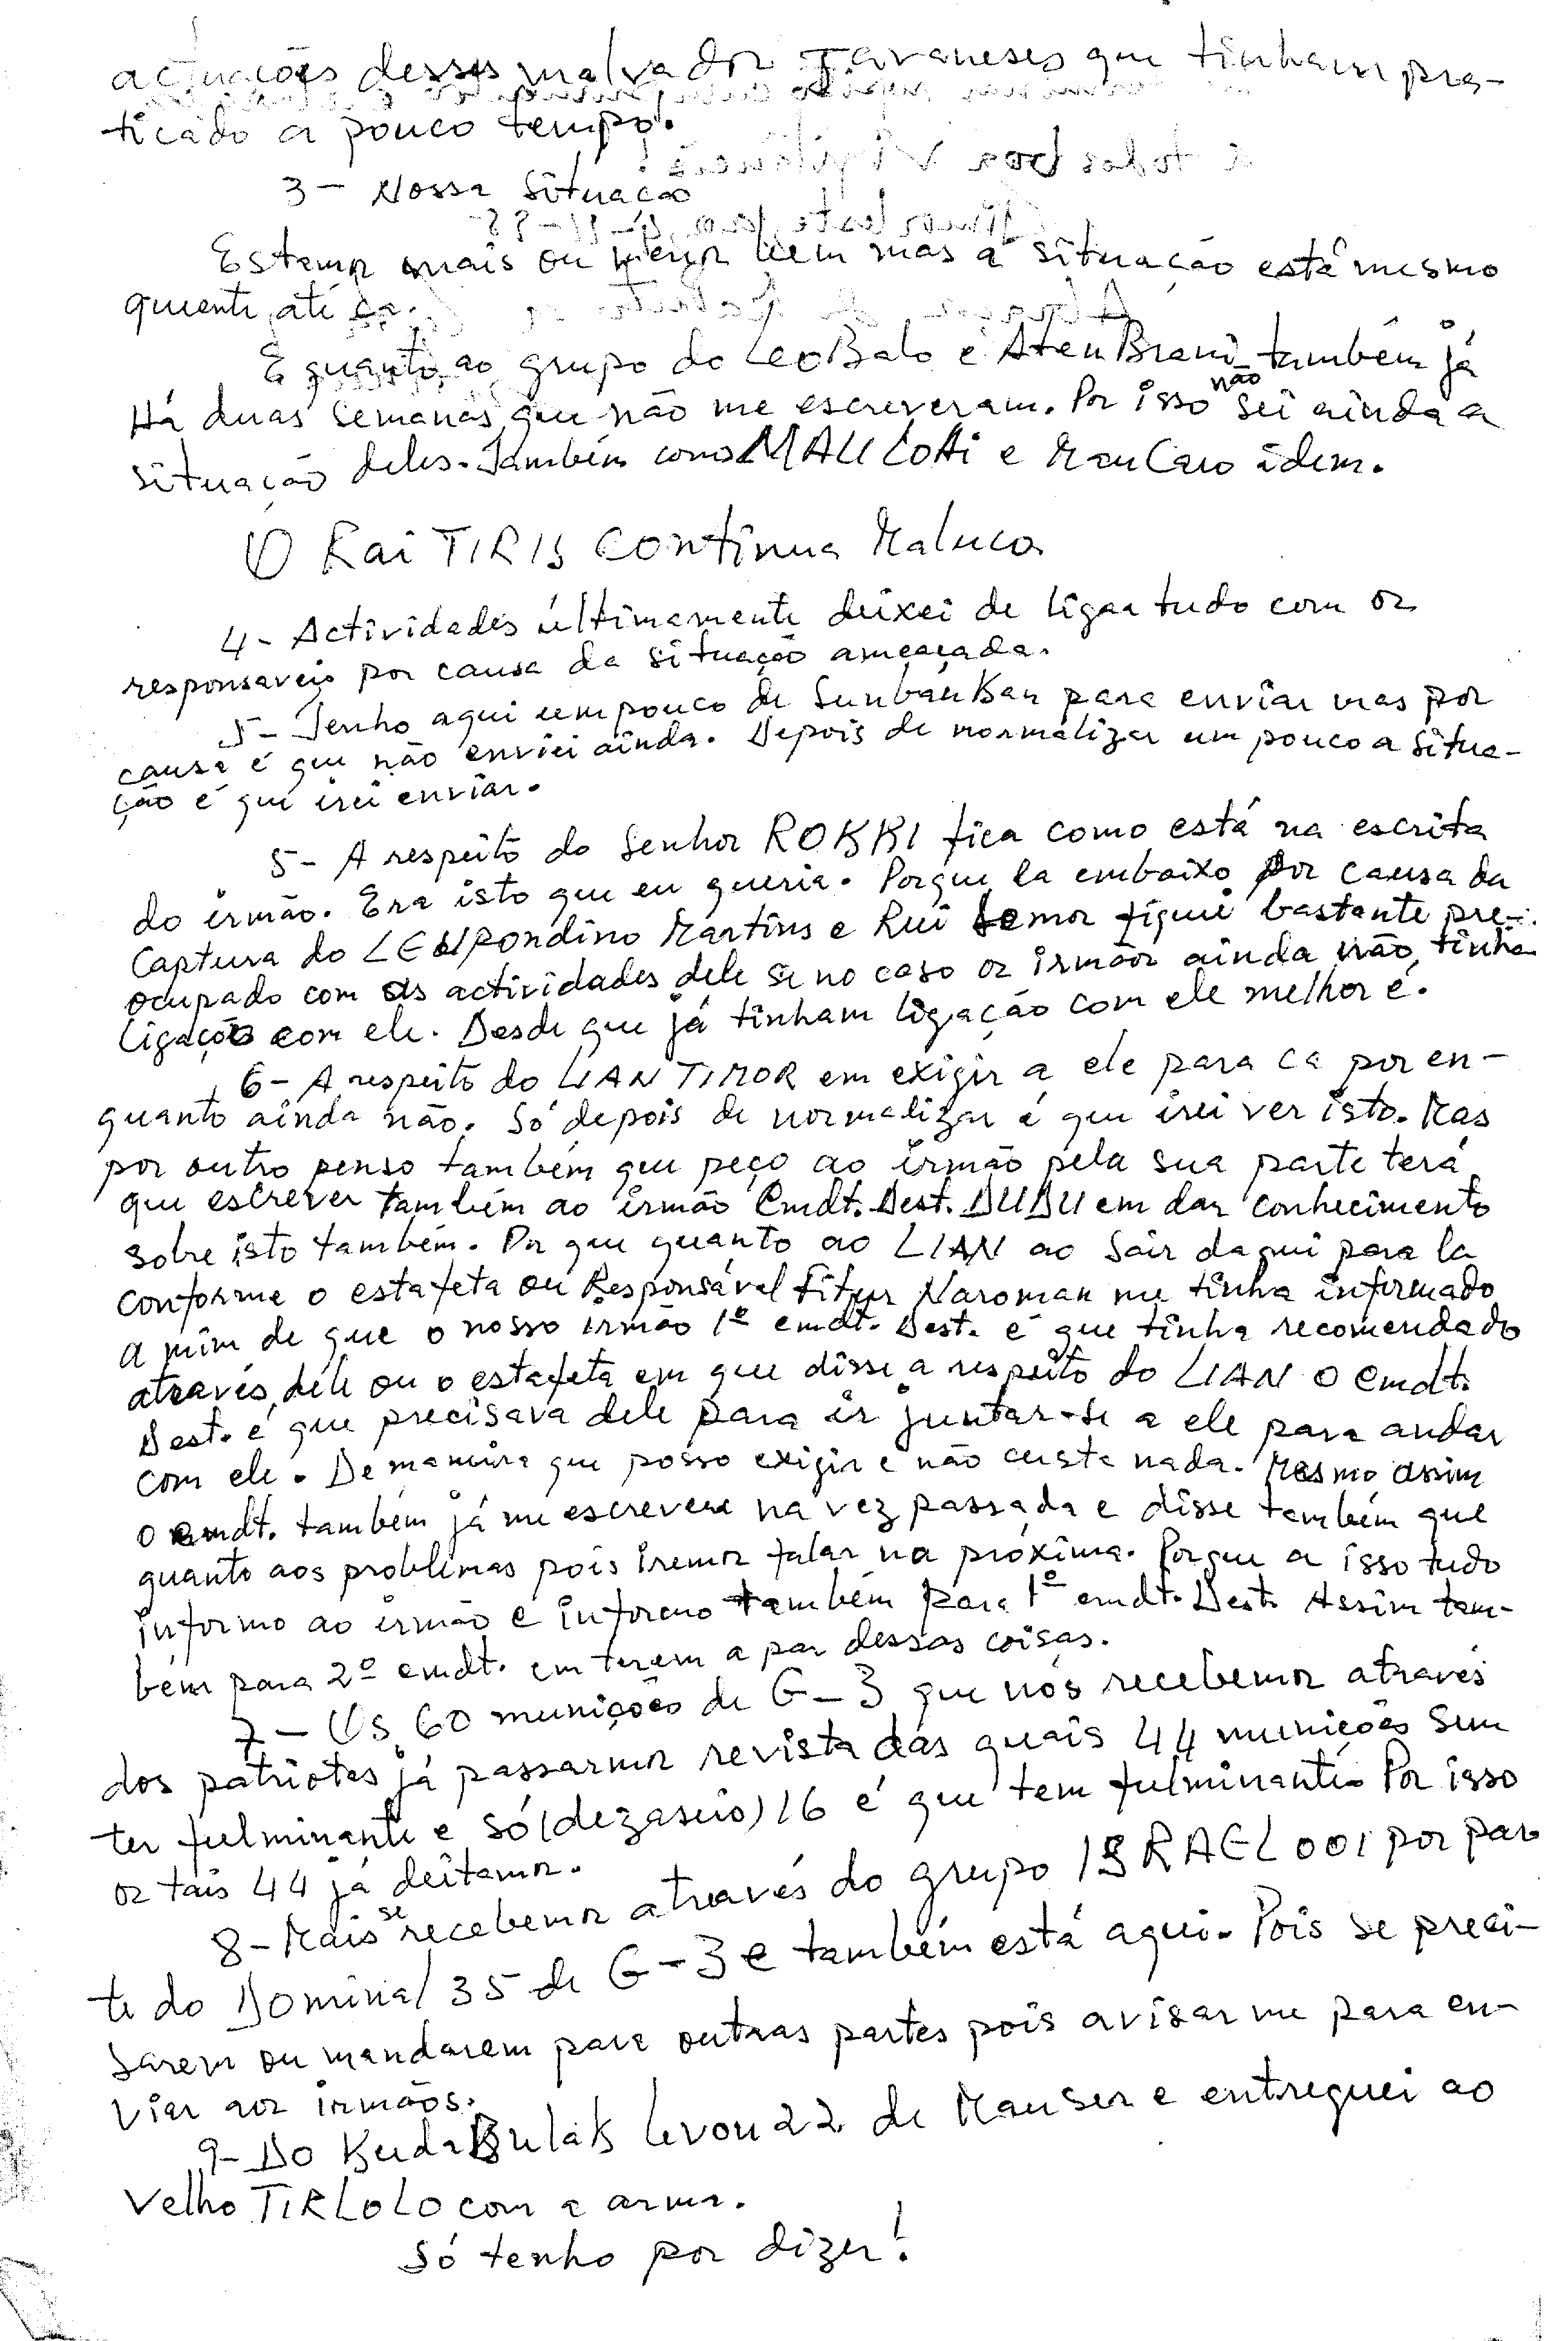 actuações desses malvados Javaneses que tinham pra-
ticado a pouco tempo.
3 - Nossa Situacao
Estamos mais ou menos bem mas a situação está mesmo
quente até ca.
E quanto ao grupo do LeoBalo e AtenBrani também já
Há duas semanas que não me escreveram. Por isso não sei ainda a
situação deles. Também como MAU COHi e MauCaro idem.
O Rai TIRIS continua Maluco
4 - Actividades últimamente deixei de ligar tudo com os
responsaveis por causa da situação ameaçada.
5 - Tenho aqui um pouco de SunbanKan para enviar mas por
causa é que não enviei ainda. Depois de normalizar um pouco a situa-
ção é que irei enviar.
5 - A respeito do Senhor ROKKI fica como está na escrita
do irmão. Era isto que eu queria. Porque la embaixo por causa da
Captura do Martins e Rui fiquei bastante pre-
ocupado com as actividades dele se no caso os irmãos ainda não tinha
ligação com ele. Desde que já tinham ligação com ele melhor é.
6 - A respeito do LIAN TIMOR em exigir a ele para ca por en-
quanto ainda não. Só depois de normalizar é que irei ver isto. Mas
por outro penso também que peço ao irmão pela sua parte terá
que escrever também ao irmão Cmdt. Dest. DUDU em dar conhecimento
sobre isto também. Por que quanto ao LIAN ao sair daqui para la
conforme o estafeta ou Responsável Fitun Naroman me tinha informado
a mim de que o nosso irmão 1º cmdt. Dest. é que tinha recomendado
através dele ou o estafeta em que disse a respeito do LIAN o cmdt.
Dest. é que precisava dele para ir juntar-se a ele para andar
com ele. De maneira que posso exigir e não custa nada. Mesmo assim
o cmdt. também já me escreveu na vez passada e disse também que
quanto aos problemas pois iremos falar na próxima. Porque a isso tudo
informo ao irmão e informo também para 1º cmdt. Dest. Assim tam-
bém para 2º cmdt. em terem a par dessas coisas.
7 - Os 60 munições de G-3 que nós recebemos através
dos patriotas já passarmos revista das quais 44 munições sem
ter fulminante e só (dezaseis) 16 é que tem fulminante. Por isso
os tais 44 já deitamos.
8 - Mais se recebemos através do grupo ISRAEL 001 por par
te do Dominal 35 de G-3 e também está aqui. Pois se preci-
sarem ou mandarem para outras partes pois avisar me para en-
viar aos irmãos.
9 - Do KudaBulaK levou 22 de Mauser e entreguei ao
Velho TIRLOLO com a arma.
Só tenho por dizer!